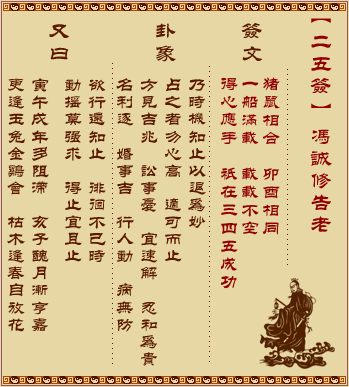 【二五簽】 馮誠修告老
簽文
豬鼠相合 卯酉相同
一船滿載 載載不空
得心應手 祇在三四五成功
卦象
乃時機知止以退爲妙
占之者勿心高 適可而止
方見吉兆 訟事憂 宜速解 忍和爲貴
名利逐 婚事吉 行人動 病無防
又曰
欲行還知止 徘徊不已時
動摇莫强求 得止宜且止
寅午戌年多阻滯 亥子醜月漸亨嘉
更逢玉兔金鷄會 枯木逢春自放花